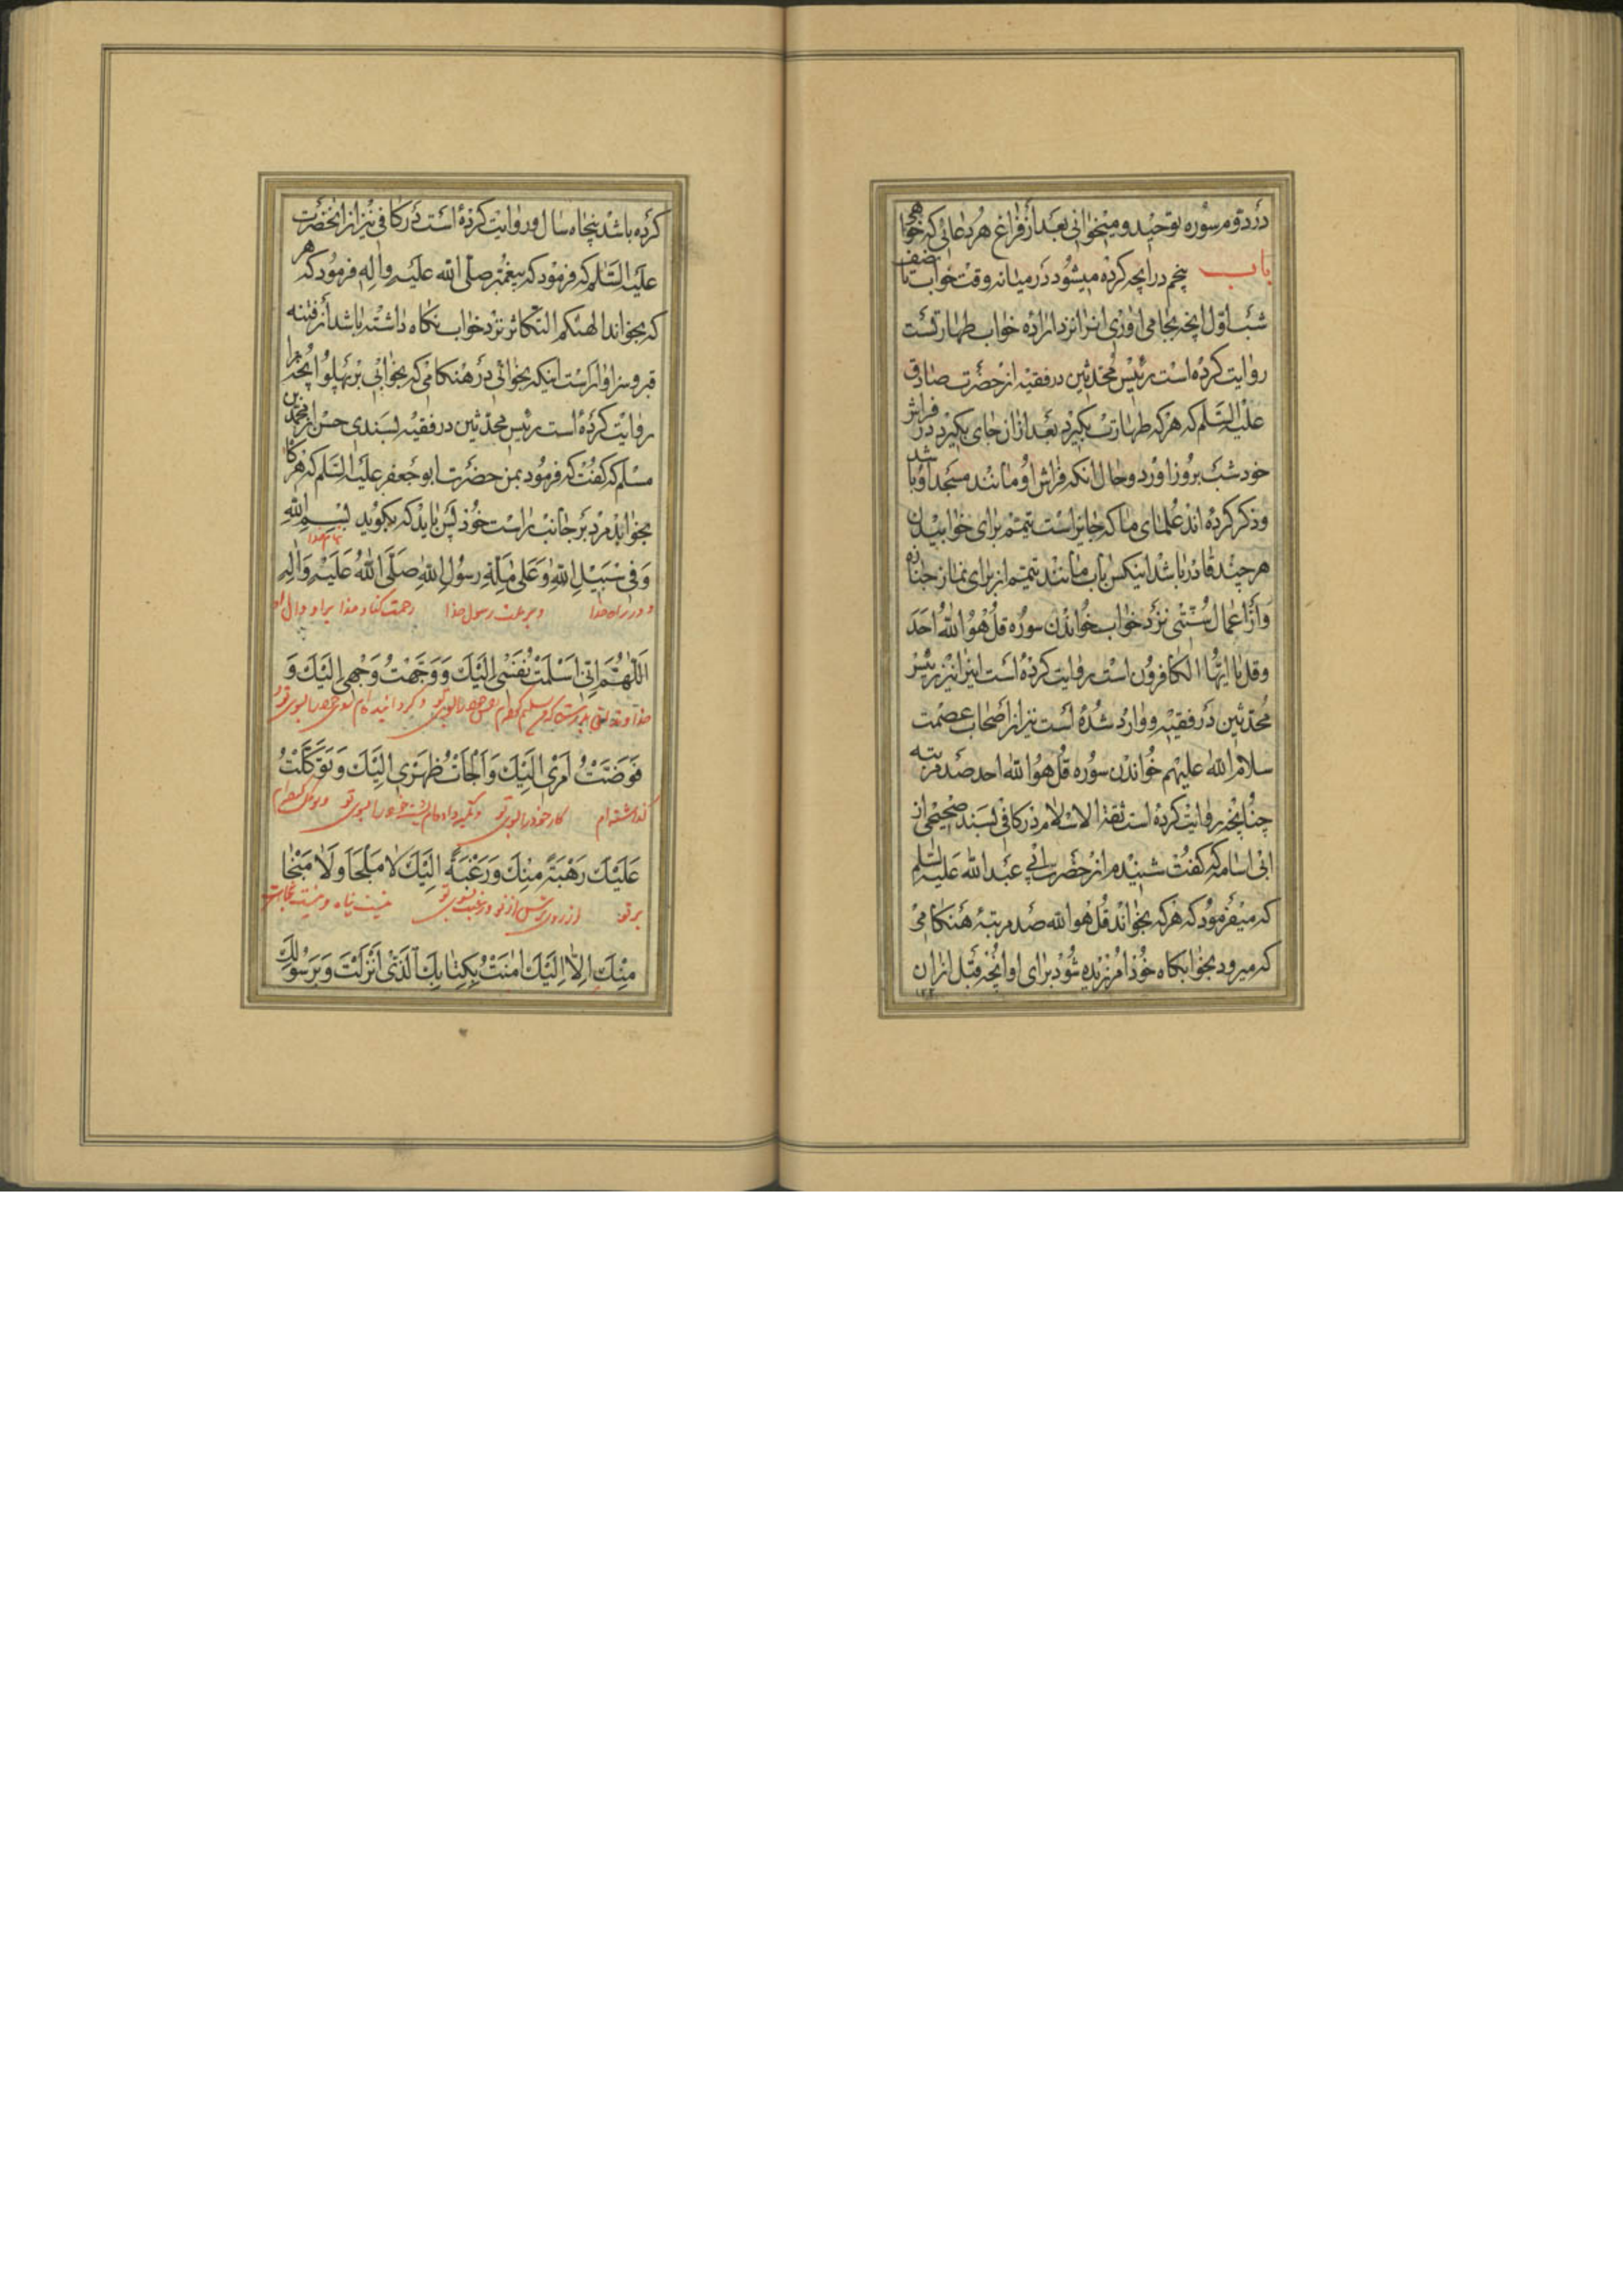 در دوم سوره توحید و میخوانی بعد از فراغ هر دعائی که خواهی
باب پنجم در انچه کرده میشود در میانه وقت خواب تا نصف
شب اول انچه بجا می اوری انرا نزد اراده خواب طهارتست
روایت کرده است رئیس محدثین در فقیه از حضرت صادق
علیه السلم که هر که طهارت بگیرد بعد از ان جای بگیرد در فراش
خود شب بروز اورد و حال انکه فراش او مانند مسجد او باشد
و ذکر کرده اند علمای ما که جایز است تیمم برای خوابیدن
هر چند قادر باشد اینکس باب مانند تیمم از برای نماز جنازه
و از اعمال سنتی نزد خواب خواندن سوره قل هو الله احد
و قل یا ایها الکافرون است روایت کرده است اینرا نیز رئیس
محدثین در فقیه و وارد شده است نیز از اصحاب عصمت
سلام الله علیهم خواندن سوره قل هو الله احد صد مرتبه
چنانچه روایت کرده است ثقة الاسلام در کافی بسند صحیح از
ابی اسامه که گفت شنیدم از حضرت ابی عبد الله علیه السلم
که میفرمود که هر که بخواند قل هو الله صد مرتبه هنگامی
که میرود بخوابگاه خود امرزیده شود برای او انچه قبل از ان
کرده باشد پنجاه سال و روایت کرده است در کافی نیز از انحضرت
علیه السلم که فرمود که پیغمبر صلی الله علیه واله فرمود که هر
که بخواند الهیکم التکاثر نزد خواب نگاه داشته باشد از فتنه
قبر و سزاوار است اینکه بخوانی در هنگامی که بخوابی بر پهلو انچه را
روایت کرده است رئیس محدثین در فقیه بسندی حسن از محمد بن
مسلم که گفت که فرمود بمن حضرت ابو جعفر علیه السلم که هر گاه
بخوابد مرد بر جانب راست خود پس باید که بگوید بِسْمِ اللهِ
بنام خدا
وَفِی سَبِیْلِ اللهِ وَعَلی مِلَّةِ رَسُوْلِ اللهِ صَلَّی اللهُ عَلَیْهِ وَالِهِ
و در راه خدا و بر ملت رسول خدا رحمت کناد خدا بر او و ال او
اَللّهُمَّ اِنِّی اَسْلَمْتُ نَفْسِی اِلَیْكَ وَوَجَّهْتُ وَجْهِی اِلَیْكَ وَ
خداوندا بدرستیکه من تسلیم کرده‌ام نفس خود را بسوی تو و گردانیده ام روی خود را بسوی تو و
فَوَّضْتُ اَمْرِی اِلَیْكَ وَاَلْجَأْتُ ظَهْرِی اِلَیْكَ وَتَوَكَّلْتُ
گذاشته ام کار خود را بسوی تو و تکیه داده ام پشت خود را بسوی تو و توکل کرده ام
عَلَیْكَ رَهْبَةً مِنْكَ وَرَغْبَةً اِلَیْكَ لَا مَلْجَأَ وَلَا مَنْجَا
بر تو از روی ترس از تو و رغبت بسوی تو نیست پناه و نیست نجات
مِنْكَ اِلَّا اِلَیْكَ امَنْتُ بِكِتَابِكَ الَّذِی اَنْزَلْتَ وَبِرَسُوْلِكَ